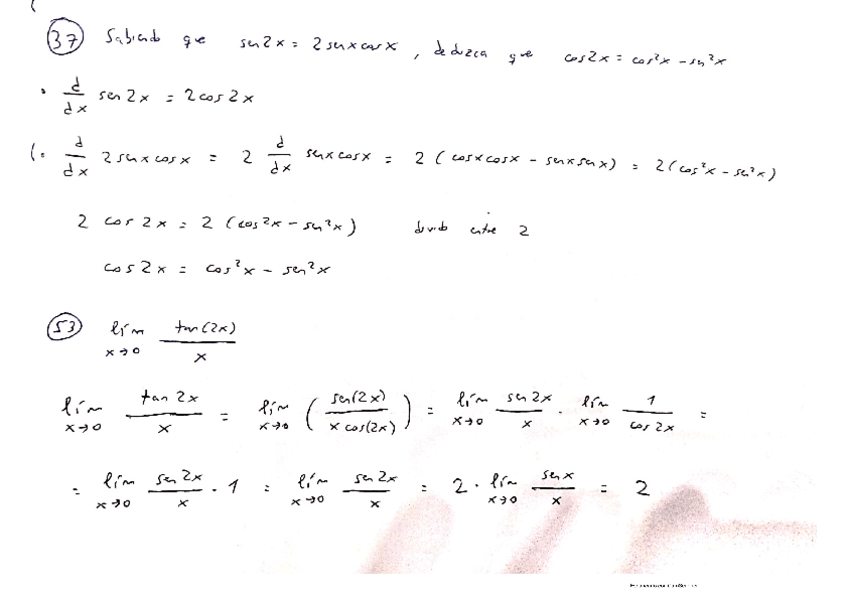 37 Sabiendo que sen2x = 2senxcosx, deduzca que cos2x = cos²x - sen²x
d/dx sen2x = 2cos2x
d/dx 2senxcosx = 2 d/dx senxcosx = 2(cosxcosx - senxsenx) = 2(cos²x - sen²x)
2 cos2x = 2(cos²x - sen²x) divido entre 2
cos2x = cos²x - sen²x
53 lím x→0 tan(2x)/x
lím x→0 tan2x/x = lím x→0 (sen(2x)/xcos(2x)) = lím x→0 sen2x/x · lím x→0 1/cos2x =
= lím x→0 sen2x/x · 1 = lím x→0 sen2x/x = 2 · lím x→0 senx/x = 2